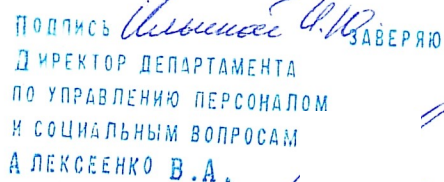 Подпись Ильиной И.Ю. ЗАВЕРЯЮ
ДИРЕКТОР ДЕПАРТАМЕНТА
ПО УПРАВЛЕНИЮ ПЕРСОНАЛОМ
И СОЦИАЛЬНЫМ ВОПРОСАМ
АЛЕКСЕЕНКО В.А.